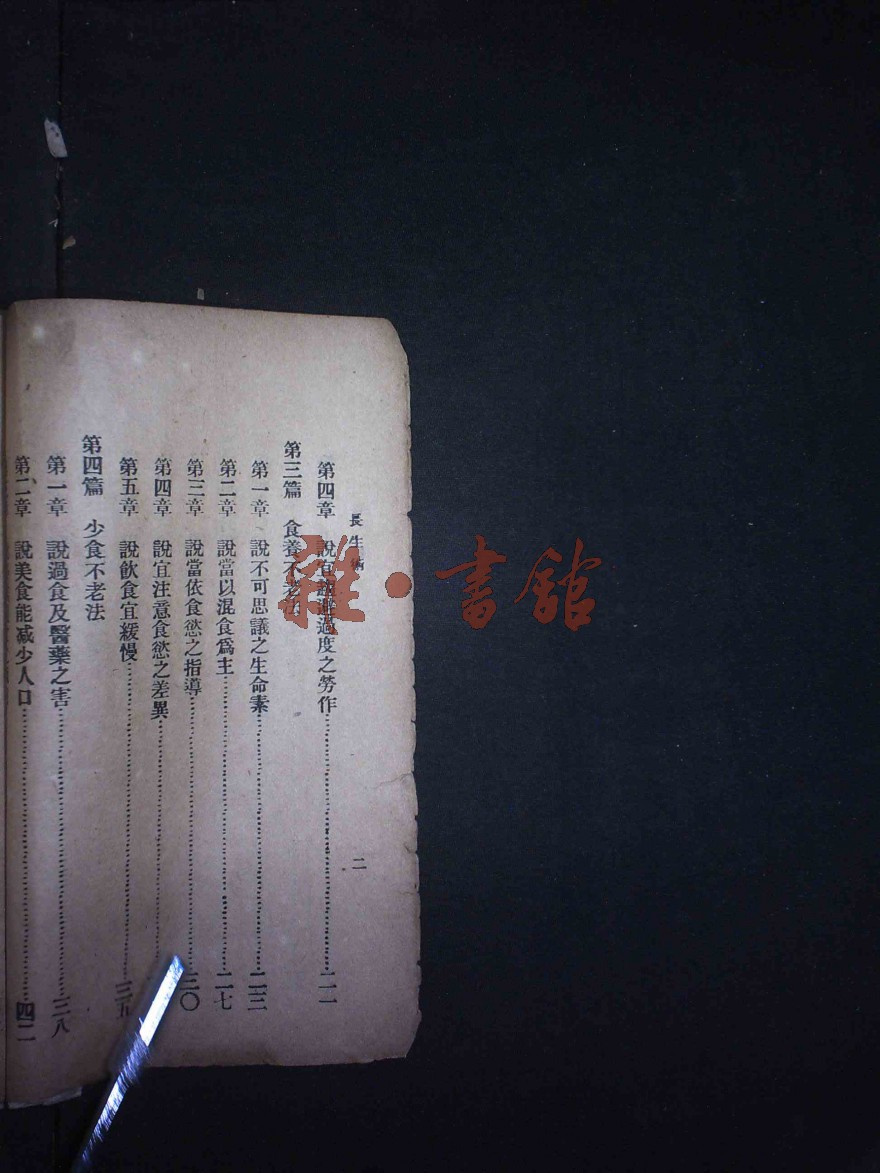 長生術 二
第四章 說 避過度之勞作……二一
第三篇 食養不老法
第一章 說不可思議之生命素……二三
第二章 說當以混食爲主……二七
第三章 說當依食慾之指導……三〇
第四章 說宜注意食慾之差異……
第五章 說飲食宜緩慢……三五
第四篇 少食不老法
第一章 說過食及醫藥之害……三八
第二章 說美食能減少人口……四二
雜·書館